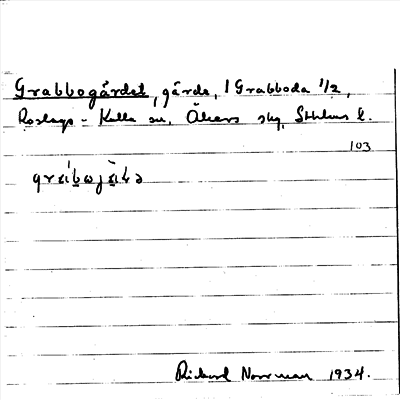 Grabbogärdet, gärde, i Grabboda 1/2,
Roslags-Kulla sn. Åkers skg, Sthlms l.
103
Rickard Norrman 1934.